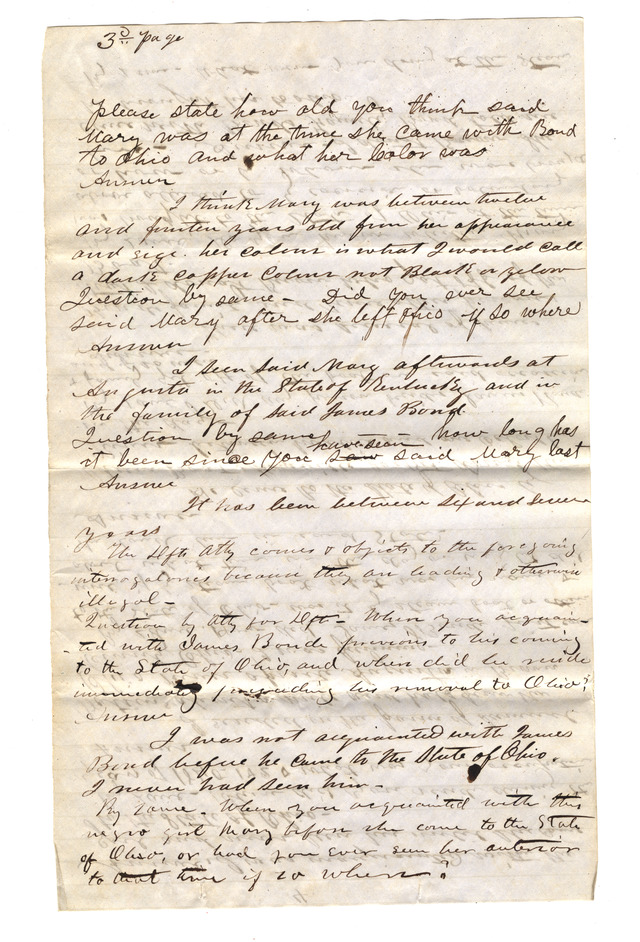 3d page
please state how old you think said
Mary was at the time she came with Bond
to Ohio and what her Color was
Answer
I think Mary was between twelve
and fourteen years old from her appearance
and size. her colour is what I would call
a dark copper Colour not Black or yelow
Question by same - Did you ever see
said Mary after she left Ohio if so where
Answer
I seen said Mary afterwards at
Augusta in the State of Kentucky and in
the family of said James Bond.
Question by same how long has
it been since you have seen said Mary last
Answer
It has been between six and seven
years
The Dfts Atty comes & objects to the foregoing
interrogatories because they are leading & otherwise
illegal -
Question by Atty for Dft - When you acquain-
-ted with James Bond previous to his coming
to the State of Ohio, and where did he reside
immediately preceding his removal to Ohio?
Answer
I was not acquainted with James
Bond before he came to the State of Ohio.
I never had seen him -
By same - When you acquainted with this
negro girl Mary before she come to the State
of Ohio, or had you ever seen her anterior
to that time if so when?